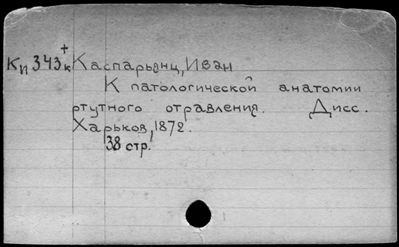 Кп 343к+ Каспарьянц, Иван
К патологической анатомии
ртутного отравления. Дисс.
Харьков, 1872.
38 стр.